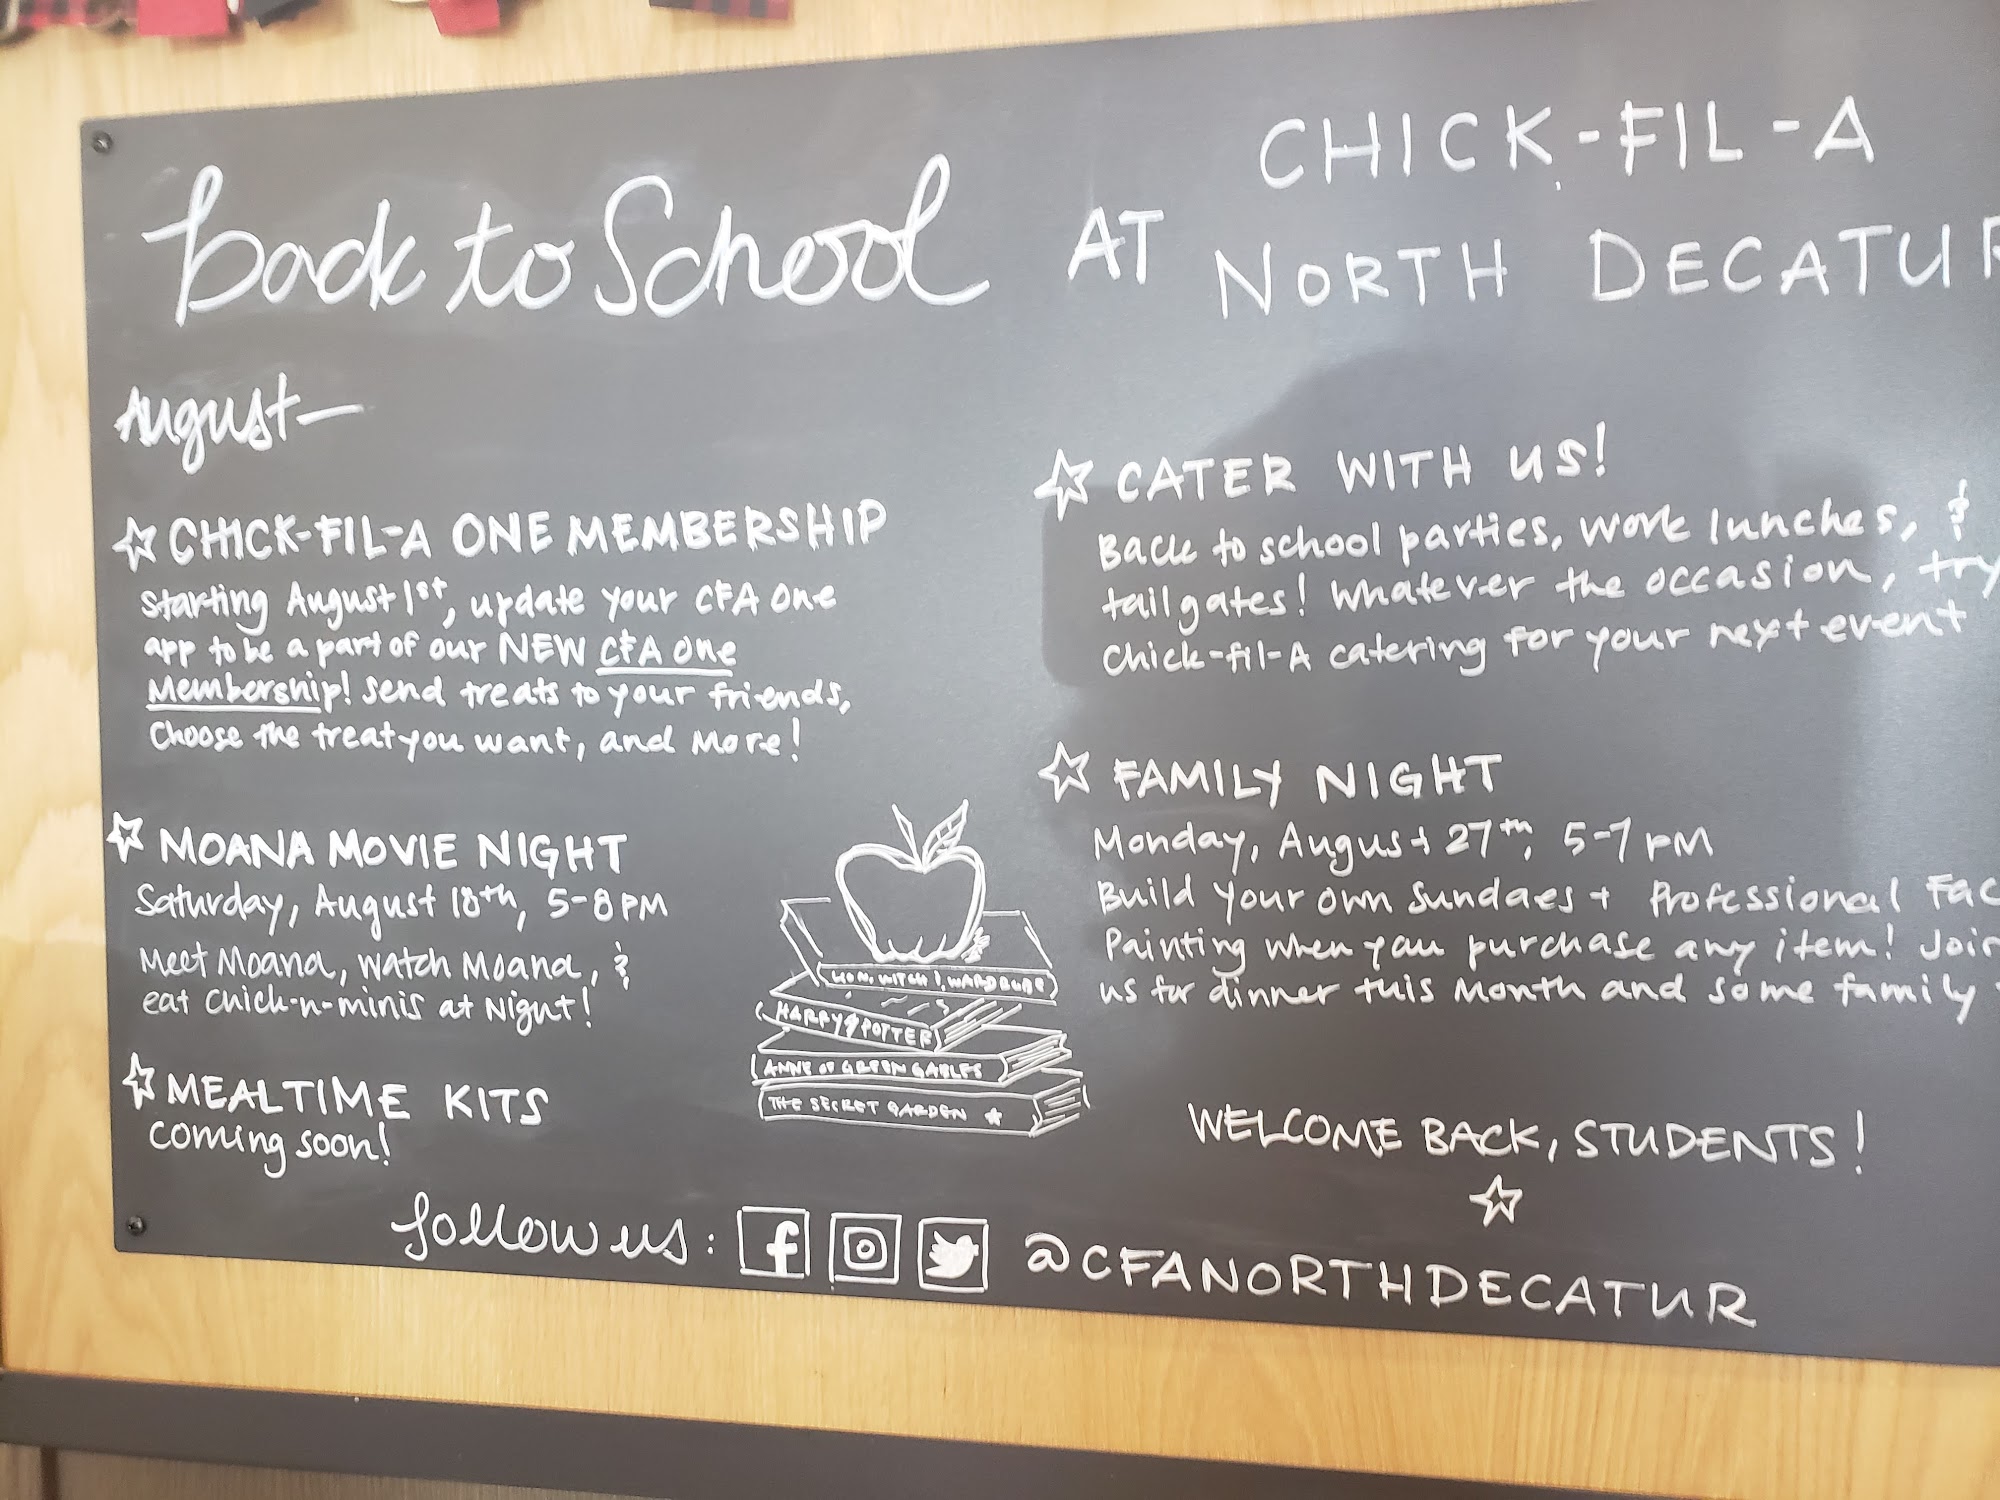 back to School
CHICK-FIL-A
AT NORTH DECATUR
August-
CHICK-FIL-A ONE MEMBERSHIP
Starting August 1st, update your CFA One
app to be a part of our NEW CFA One
Membership! Send treats to your friends,
Choose the treat you want, and more!
MOANA MOVIE NIGHT
Saturday, August 18th, 5-8 PM
Meet Moana, watch Moana, &
eat Chick-n-minis at Night!
MEALTIME KITS
coming soon!
CATER WITH US!
Back to school parties, work lunches, &
tailgates! Whatever the occasion, try
Chick-fil-A catering for your next event
FAMILY NIGHT
Monday, August 27th, 5-7 PM
Build your own Sundaes + Professional Fac
Painting when you purchase any item! Join
us for dinner this month and some family
LION, WITCH, WARDROBE
HARRY POTTER
ANNE OF GREEN GABLES
THE SECRET GARDEN
WELCOME BACK, STUDENTS!
follow us: f @CFANORTHDECATUR